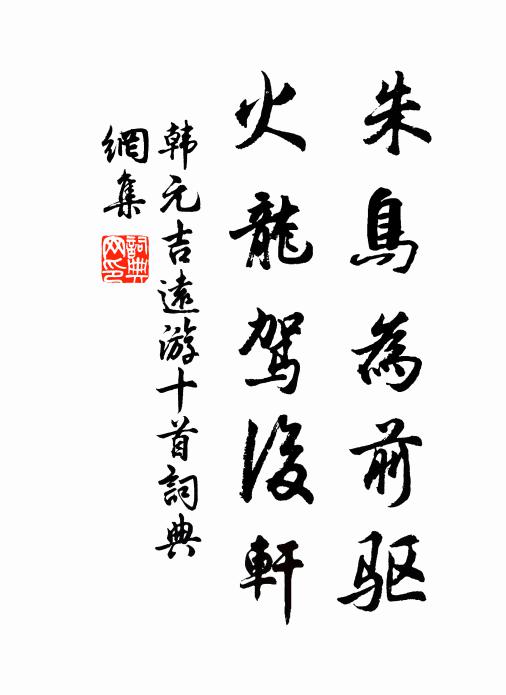 朱鳥為前驱
火龍駕後軒
韩元吉遠游十首詞典
網集
詞典网印